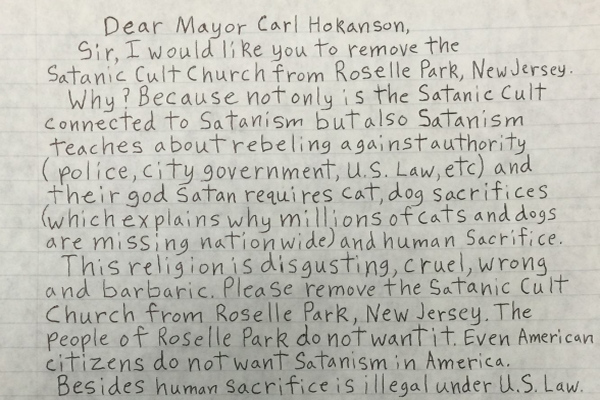 Dear Mayor Carl Hokanson,
Sir, I would like you to remove the
Satanic Cult Church from Roselle Park, New Jersey.
Why? Because not only is the Satanic Cult
connected to Satanism but also Satanism
teaches about rebeling against authority
(police, city government, U.S. Law, etc) and
their god Satan requires cat, dog sacrifices
(which explains why millions of cats and dogs
are missing nationwide) and human Sacrifice.
This religion is disgusting, cruel, wrong
and barbaric. Please remove the Satanic Cult
Church from Roselle Park, New Jersey. The
people of Roselle Park do not want it. Even American
citizens do not want Satanism in America.
Besides human sacrifice is illegal under U.S. Law.